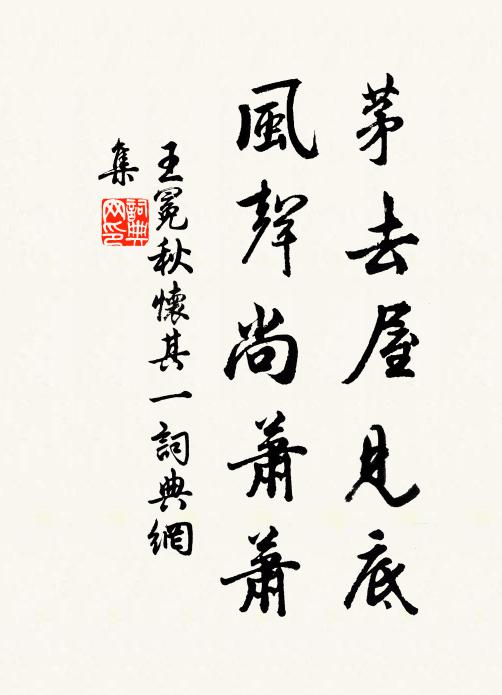 茅去屋見底
風聲尚蕭蕭
王冕秋懷其一詞典網
集
詞典
网印